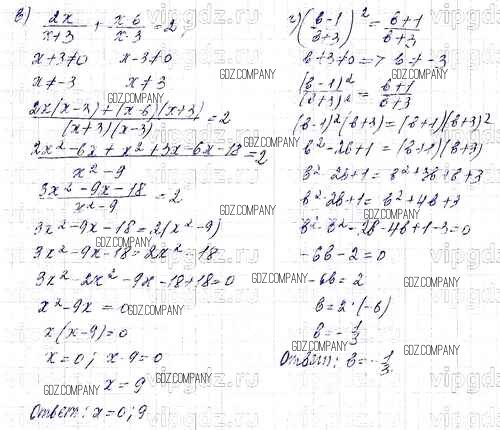 в) 2x/(x+3) + (x-6)/(x-3) = 2;
x+3≠0 x-3≠0
x≠-3 x≠3
(2x(x-3)+(x-6)(x+3))/((x+3)(x-3)) = 2
(2x²-6x+x²+3x-6x-18)/(x²-9) = 2
(3x²-9x-18)/(x²-9) = 2
3x²-9x-18=2(x²-9)
3x²-9x-18=2x²-18
3x²-2x²-9x-18+18=0
x²-9x=0
x(x-9)=0
x=0; x-9=0
x=9
Ответ: x=0; 9
г) ((в-1)/(в+3))² = (в+1)/(в+3)
в+3≠0 => в≠-3
(в-1)²/(в+3)² = (в+1)/(в+3)
(в-1)²(в+3)=(в+1)(в+3)²
в²-2в+1=(в+1)(в+3)
в²-2в+1=в²+3в+в+3
в²-2в+1=в²+4в+3
в²-в²-2в-4в+1-3=0
-6в-2=0
-6в=2
в=2:(-6)
в=-1/3
Ответ: в=-1/3
GDZ.COMPANY
vipgdz.com